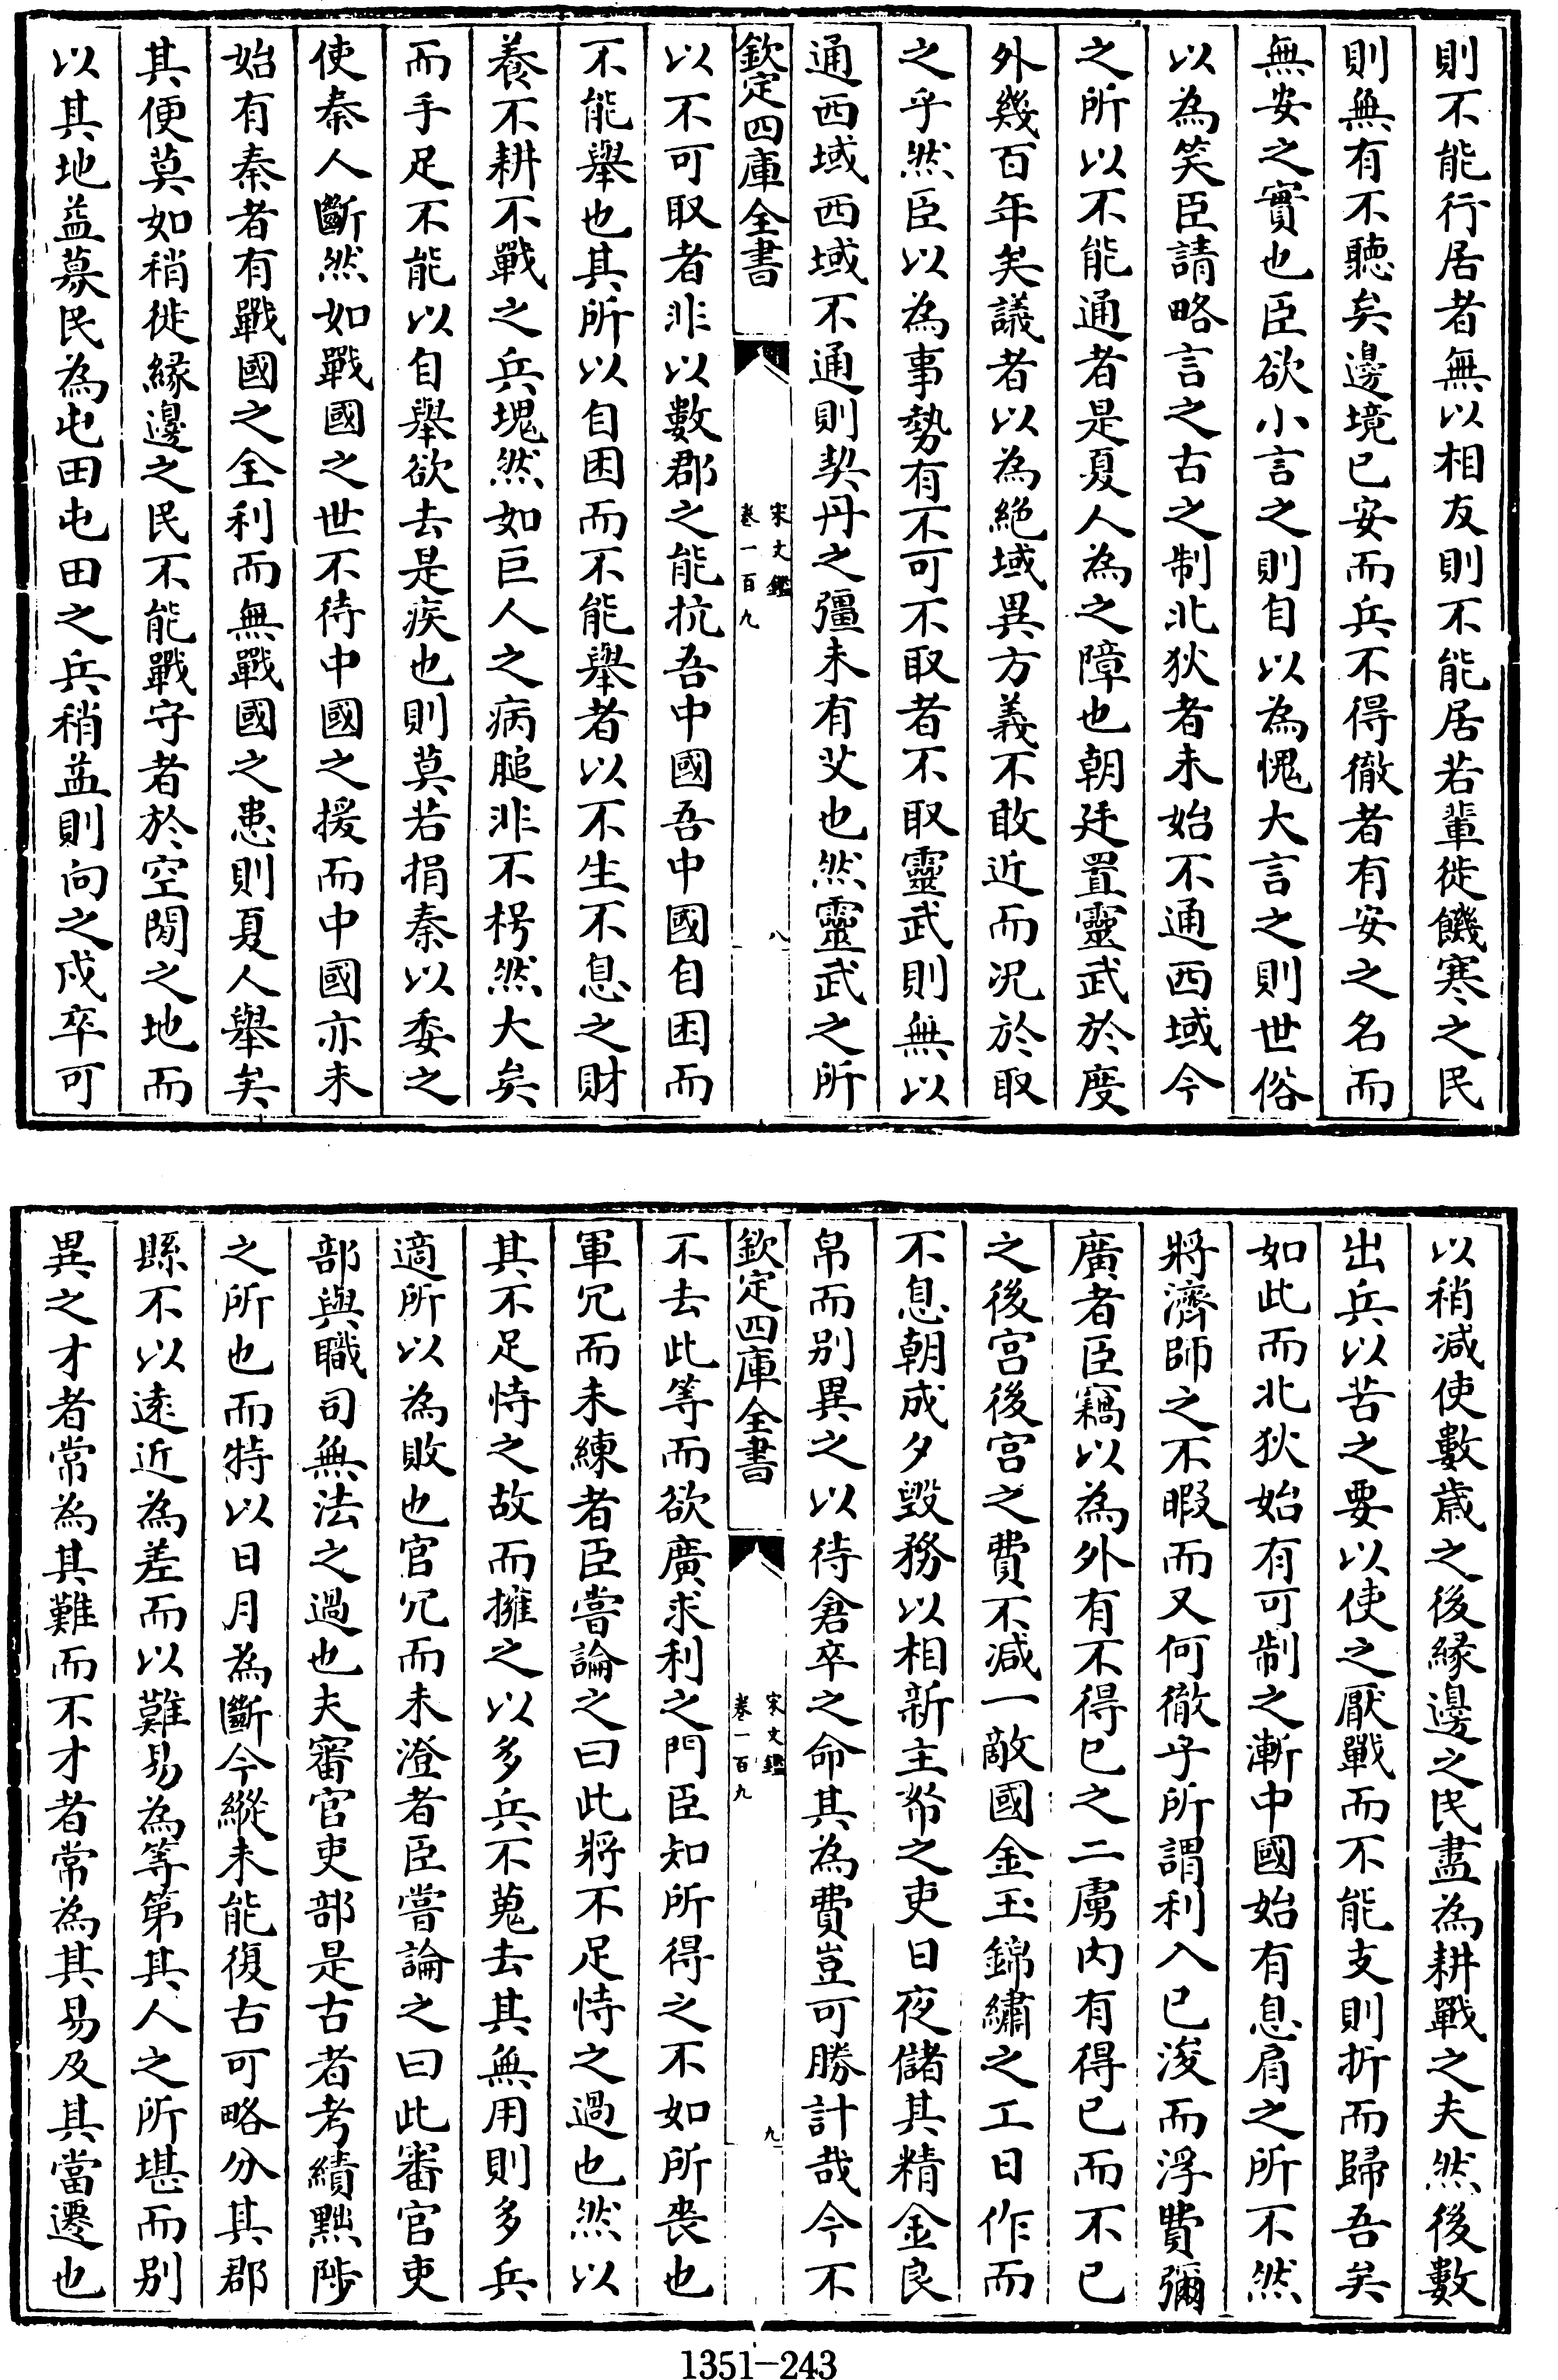 則不能行居者無以相友則不能居若輩徙饑寒之民
則無有不聽矣邊境已安而兵不得徹者有安之名而
無安之實也臣欲小言之則自以為愧大言之則世俗
以為笑臣請略言之古之制北狄者未始不通西域今
之所以不能通者是夏人為之障也朝廷置靈武於度
外幾百年矣議者以為絶域異方義不敢近而况於取
之乎然臣以為事勢有不可不取者不取靈武則無以
通西域西域不通則契丹之彊未有艾也然靈武之所
欽定四庫全書
宋文鑑
卷一百九
八
以不可取者非以數郡之能抗吾中國吾中國自困而
不能舉也其所以自困而不能舉者以不生不息之財
養不耕不戰之兵塊然如巨人之病膇非不枵然大矣
而手足不能以自舉欲去是疾也則莫若捐秦以委之
使秦人斷然如戰國之世不待中國之援而中國亦未
始有秦者有戰國之全利而無戰國之患則夏人舉矣
其便莫如稍徙緣邊之民不能戰守者於空閒之地而
以其地益募民為屯田屯田之兵稍益則向之戍卒可
以稍减使數歳之後緣邊之民盡為耕戰之夫然後數
出兵以苦之要以使之厭戰而不能支則折而歸吾矣
如此而北狄始有可制之漸中國始有息肩之所不然
將濟師之不暇而又何徹乎所謂利入已浚而浮費彌
廣者臣竊以為外有不得已之二虜内有得已而不已
之後宫後宫之費不减一敵國金玉錦繡之工日作而
不息朝成夕毁務以相新主帑之吏日夜儲其精金良
帛而别異之以待倉卒之命其為費豈可勝計哉今不
欽定四庫全書
宋文鑑
卷一百九
九
不去此等而欲廣求利之門臣知所得之不如所喪也
軍冗而未練者臣嘗論之曰此將不足恃之過也然以
其不足恃之故而擁之以多兵不蒐去其無用則多兵
適所以為敗也官冗而未澄者臣嘗論之曰此審官吏
部與職司無法之過也夫審官吏部是古者考績黜陟
之所也而特以日月為斷今縱未能復古可略分其郡
縣不以逺近為差而以難易為等第其人之所堪而别
異之才者常為其難而不才者常為其易及其當遷也
1351-243